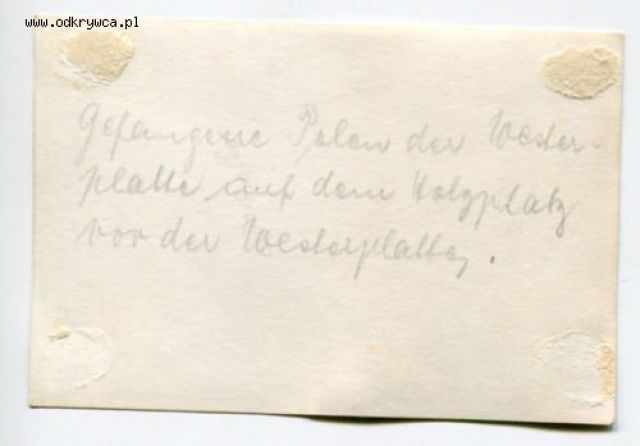 www.odkrywca.pl
Gefangene Polen der Wester-
platte auf dem Holzplatz
vor der Westerplatte.